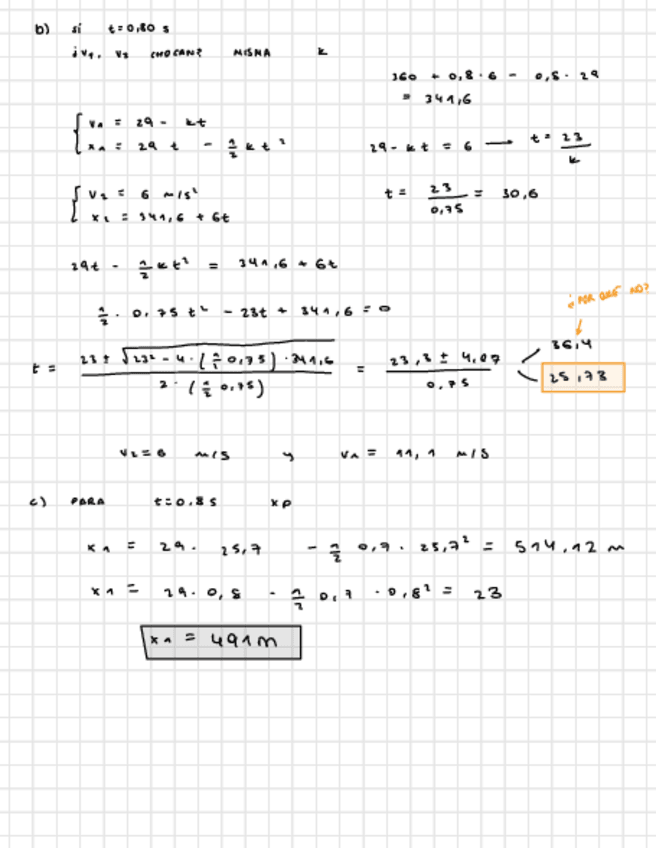 b) si t=0,80 s
¿v1, v2 CHOCAN? MISMA k
360 + 0,8·6 - 0,8·29
= 341,6
v1 = 29 - kt
x1 = 29 t - 1/2 k t²
29 - kt = 6 → t = 23/k
v2 = 6 m/s²
x2 = 341,6 + 6t
t = 23/0,75 = 30,6
29t - 1/2 k t² = 341,6 + 6t
1/2 · 0,75 t² - 23t + 341,6 = 0
¿POR QUÉ NO?
t = 23 ± √(23² - 4·(1/2 0,75)·341,6) / 2·(1/2 0,75) = 23,3 ± 4,07 / 0,75
36,4
25,73
v2 = 6 m/s y v1 = 11,1 m/s
c) PARA t=0,8 s xp
x1 = 29· 25,7 - 1/2 0,7· 25,7² = 514,12 m
x1 = 29·0,8 - 1/2 0,7 ·0,8² = 23
x1 = 491m